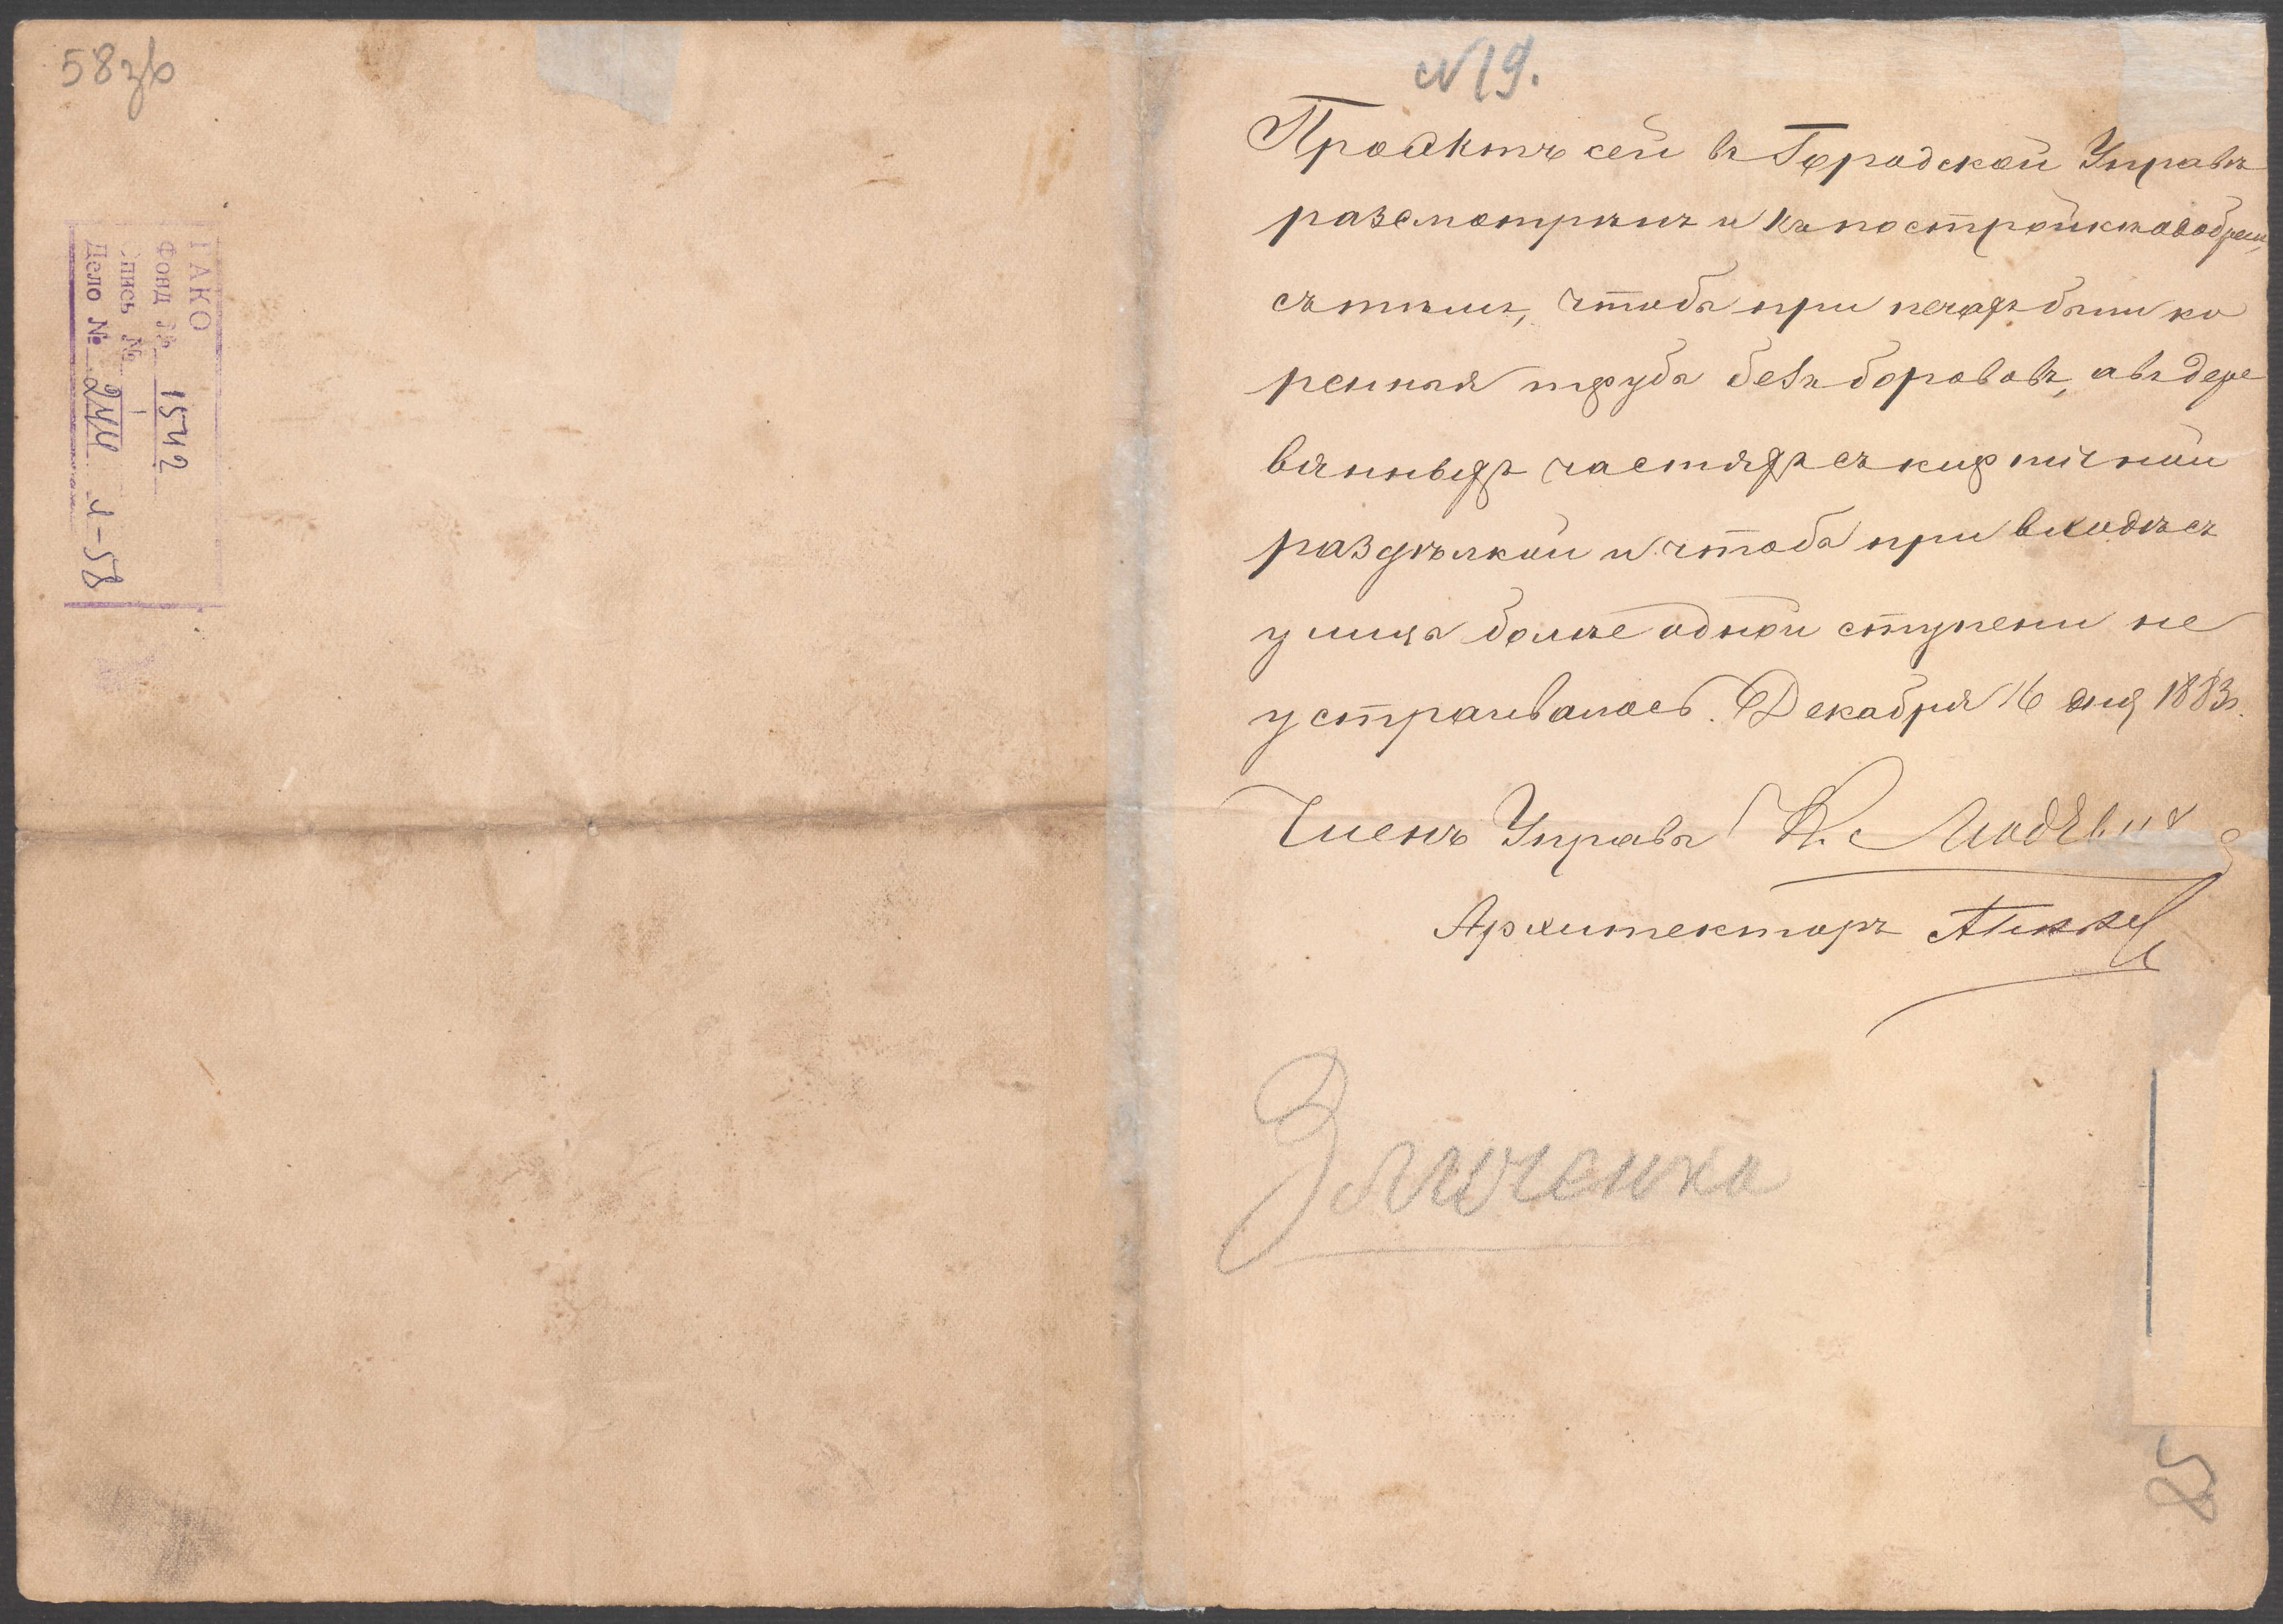 58зв
ГАКО
Фонд № 1542
Опись № 1
Дело № 244 л-58
№19.
Проэктъ сей въ Городской Управѣ
разсмотрѣнъ и къ постройкѣ одобренъ,
съ тѣмъ, чтобы при печахъ были ко
ренныя трубы безъ борововъ, а въ дере
вянныхъ частяхъ съ кирпичной
раздѣлкой и чтобы при входѣ съ
улицы болѣе одной ступени не
устраивалось. Декабря 16 дня 1883г.
Членъ Управы
Архитекторъ
85